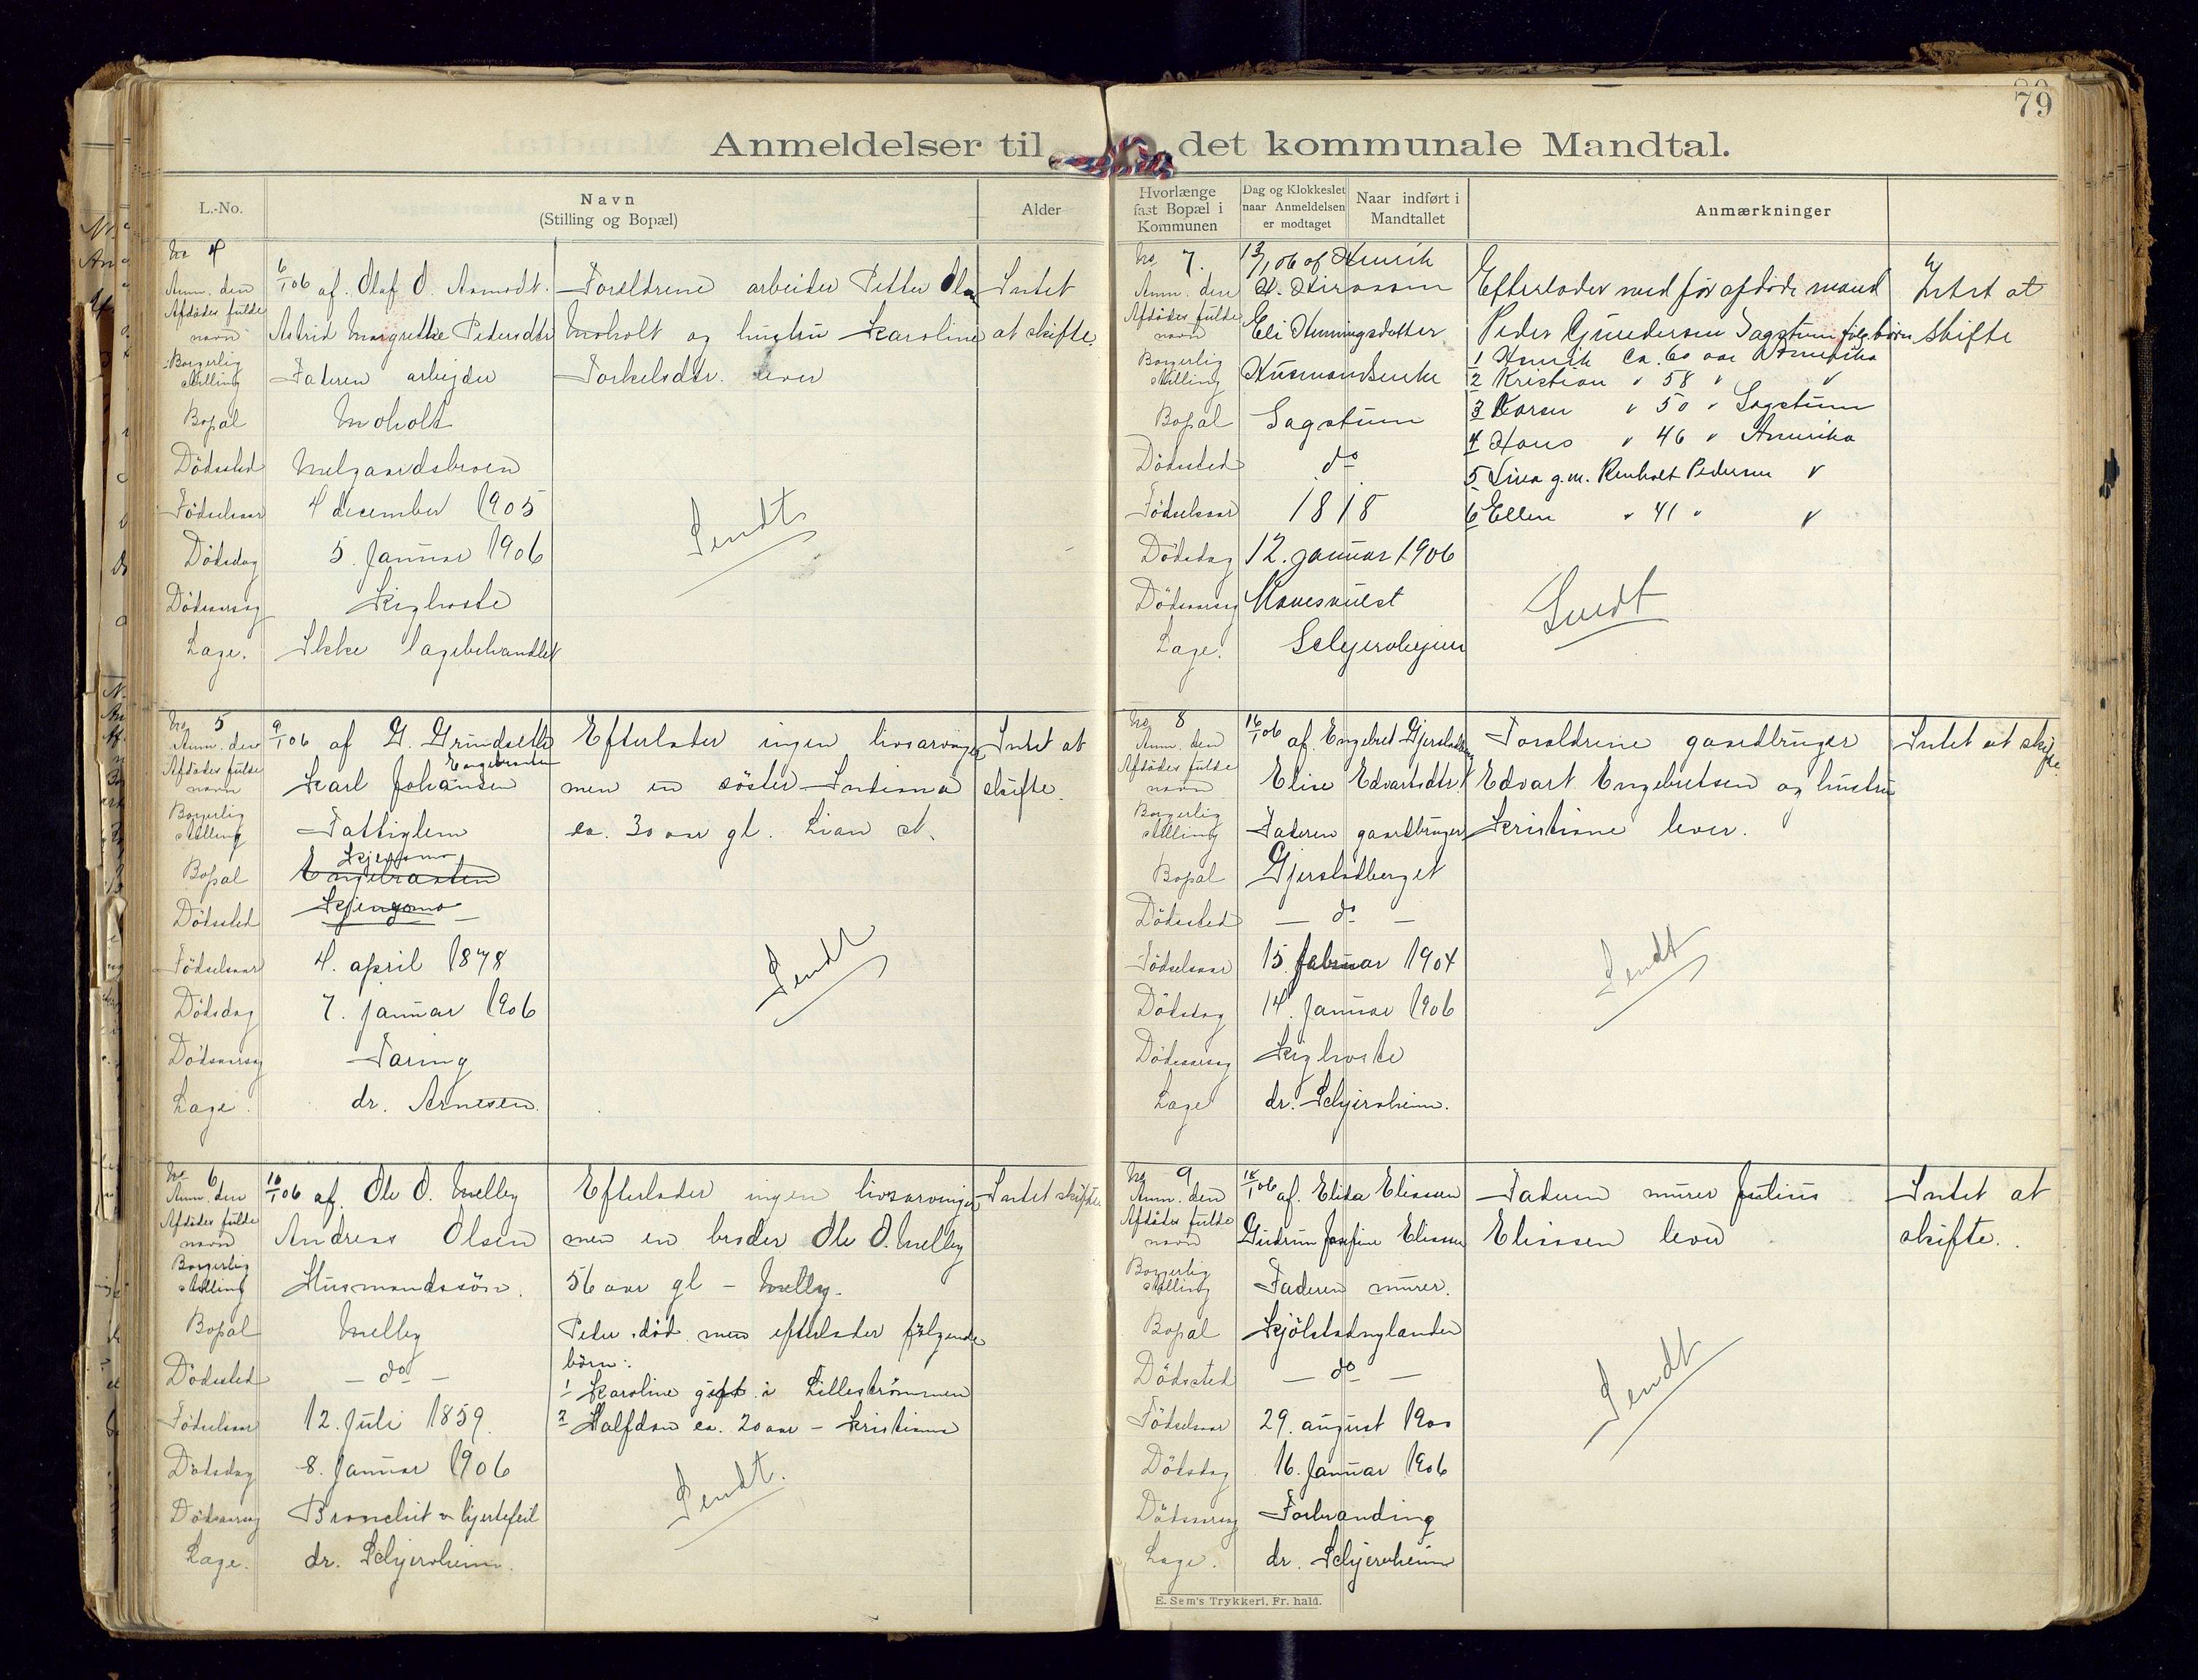 79
Anmeldelser til det kommunale Mandtal.
L.-No.
Navn
(Stilling og Bopæl)
Alder
Hvorlænge
fast Bopæl i
Kommunen
Dag og Klokkeslet
naar Anmeldelsen
er modtaget
Naar indført i
Mandtallet
Anmærkninger
No 4
Anm. den 6/1 06 af. Olaf O. Aamodt.
Afdødes fulde
navn Astrid Margrethe Pedersdtr
Borgerlig
stilling Faderen arbejder
Bopæl Moholt
Dödssted Melgaardsbroen
Födselsaar 4 december 1905
Dödsdag 5. Januar 1906
Dödsaarsag Kighoste
Læge. Ikke lægebehandlet
Foreldrene arbeider Petter Olsen
Moholt og hustru Karoline
Torkelsdtr. lever
Sendt
Intet
at skifte
No 5
Anm. den 9/1 06 af G. Grindsetti
Afdødes fulde Engebraaten
navn Karl Johansen
Borgerlig
stilling Fattiglem
Kjensmo
Bopæl Engebraaten
Dödssted Kjensmo
Födselsaar 4. april 1878
Dödsdag 7. Januar 1906
Dödsaarsag Tæring
Læge. dr. Arnesen.
Efterlader ingen livsarvinger
men en söster
ca. 30 aar gl. Lian st.
Sendt
Intet at
skifte.
No 6
Anm. den 10/1 06 af. Ole O. Melby
Afdödes fulde
navn Andreas Olsen
Borgerlig
stilling Husmandssön.
Bopæl Melby
Dödssted — do —
Födselsaar 12. Juli 1859.
Dödsdag 8. Januar 1906
Dödsaarsag Bronchit & hjertefeil
Læge. dr. Schjervheim.
Efterlader ingen livsarvinger
men en broder Ole O. Melby
56 aar gl – Melby.
Peder död men efterlader fölgende
börn:
1 Karoline gift i Lilleströmmen
2 Halfdan ca. 20 aar – Kristiania
Sendt.
Intet skifte.
No 7.
Anm. den 13/1 06 af Henrik
Afdødes fulde
navn Eli Henningsdatter
Borgerlig
stilling Husmandsenke
Bopæl Sagstuen
Dödssted do
Födselsaar 1818
Dödsdag 12. januar 1906
Dödsaarsag Mavesvulst
Læge. Schjervhejm
Efterlader med før afdøde mand
Peder Gundersen Sagstuen følg. børn
1 Henrik ca. 60 aar Amerika
2 Kristian " 58 " "
3 Karen " 50 " Sagstuen
4 Hans " 46 " Amerika
5 Lina g.m. Renholt Pedersen "
6 Ellen " 41 " "
Sendt
Intet at
skifte
No 8
Anm. den 16/1 06 af. Engebret Gjerstadberget
Afdødes fulde
navn Elise Edvartsdtr.
Borgerlig
stilling Faderen gaardbruger
Bopæl Gjerstadberget
Dödssted — do —
Födselsaar 15. februar 1904
Dödsdag 14. Januar 1906
Dödsaarsag Kighoste
Læge dr. Schjervheim.
Foreldrene gaardbruger
Edvart Engebretsen og hustru
Kristiane lever.
Sendt
Intet at skifte.
No 9
Anm. den 18/1 06 af. Elida Eliassen
Afdødes fulde
navn Gudrun Josefine Eliassen
Borgerlig
stilling Faderen murer.
Bopæl Kjölstadnylander
Dödssted — do —
Födselsaar 29. august 1900
Dödsdag 16. Januar 1906
Dödsaarsag Forbrænding
Læge. dr. Schjervheim
Faderen murer Julius
Eliassen lever
Sendt
Intet at
skifte.
E. Sem's Trykkeri. Fr. hald.